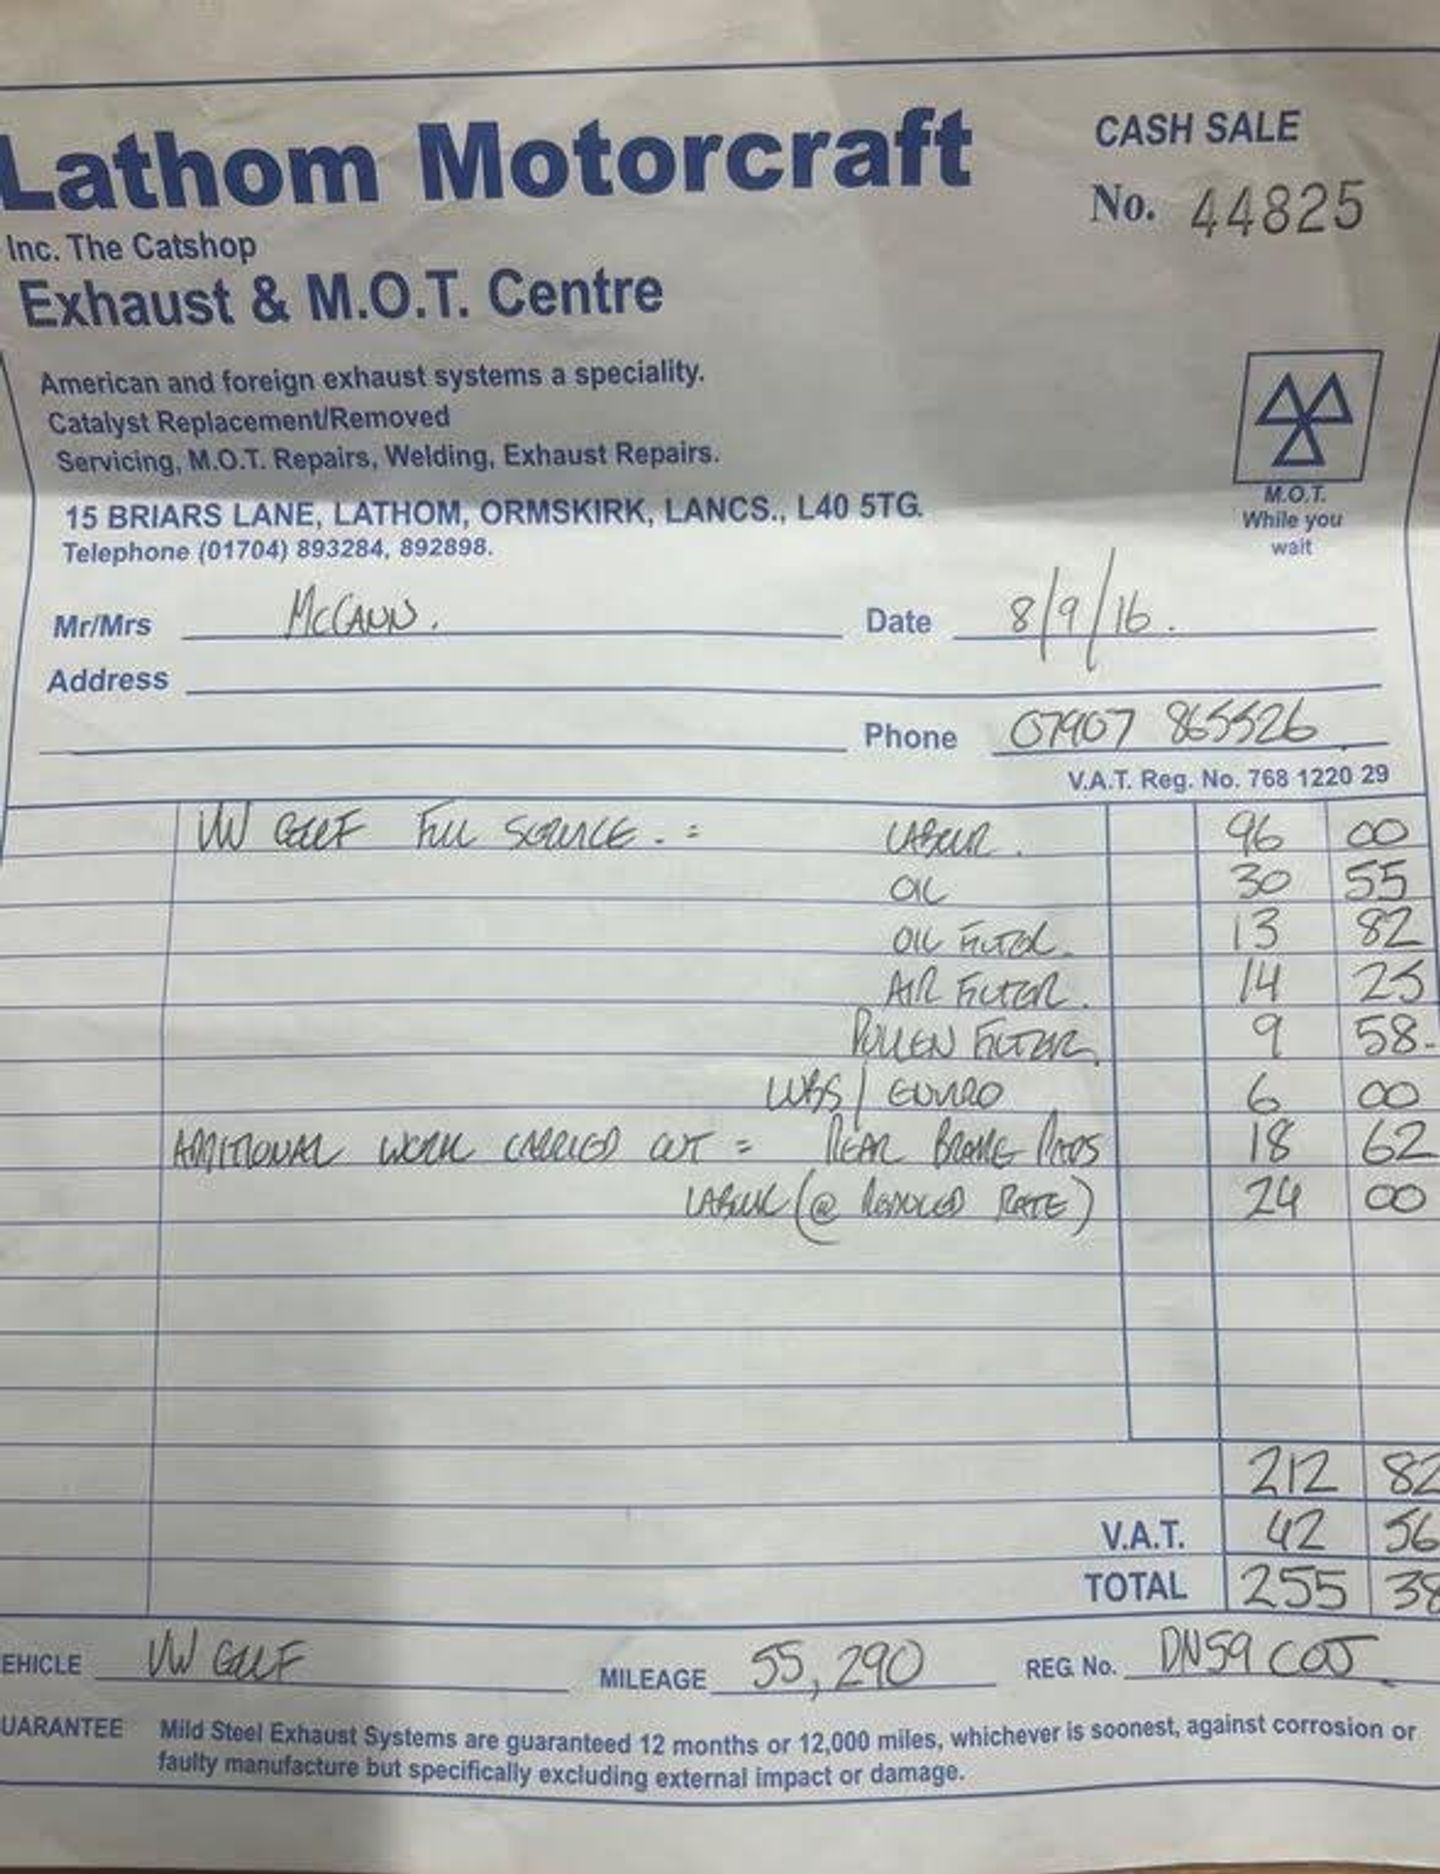 Lathom Motorcraft
CASH SALE
No. 44825
Inc. The Catshop
Exhaust & M.O.T. Centre
American and foreign exhaust systems a speciality.
Catalyst Replacement/Removed
Servicing, M.O.T. Repairs, Welding, Exhaust Repairs.
15 BRIARS LANE, LATHOM, ORMSKIRK, LANCS., L40 5TG.
Telephone (01704) 893284, 892898.
M.O.T.
While you
wait
Mr/Mrs McCANN. Date 8/9/16.
Address
Phone 07907 865526
V.A.T. Reg. No. 768 1220 29
VW GOLF FULL SERVICE. = LABOUR. 96 00
OIL 30 55
OIL FILTER. 13 82
AIR FILTER. 14 25
POLLEN FILTER. 9 58-
W/S / ENVIRO 6 00
ADDITIONAL WORK CARRIED OUT = REAR BRAKE PADS 18 62
LABOUR (@ REDUCED RATE) 24 00
212 82
V.A.T. 42 56
TOTAL 255 38
EHICLE VW GOLF MILEAGE 55,290 REG. No. DN59 COJ
UARANTEE Mild Steel Exhaust Systems are guaranteed 12 months or 12,000 miles, whichever is soonest, against corrosion or
faulty manufacture but specifically excluding external impact or damage.